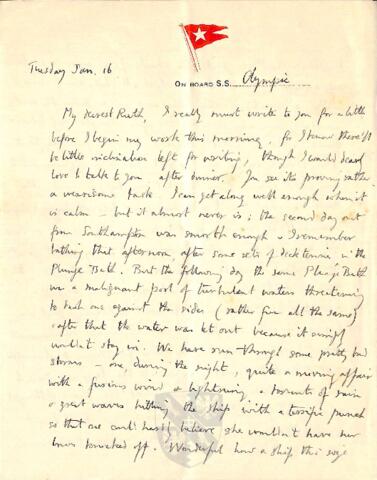 Tuesday Jan. 16
ON BOARD S.S. Olympic
My dearest Ruth, I really must write to you for a little
before I begin my work this morning, for I know there'll
be little inclination left for writing, though I would dearly
love to talk to you after dinner. You see it's proving rather
a wearisome task. I can get along well enough when it
is calm - but it almost never is; the second day out
from Southampton was smooth enough & I remember
bathing that afternoon, after some sets of deck tennis in the
Plunge Bath. But the following day the same Plunge Bath
was a malignant pool of turbulent waters threatening
to dash one against the sides (rather fun all the same)
& after that the water was let out because it simply
wouldn't stay in. We have run through some pretty bad
storms - one, during the night, quite a moving affair
with a furious wind & lightning, & torrents of rain
& great waves hitting the ship with a terrific punch
so that one could hardly believe she wouldn't have her
bows knocked off. Wonderful how a ship this size